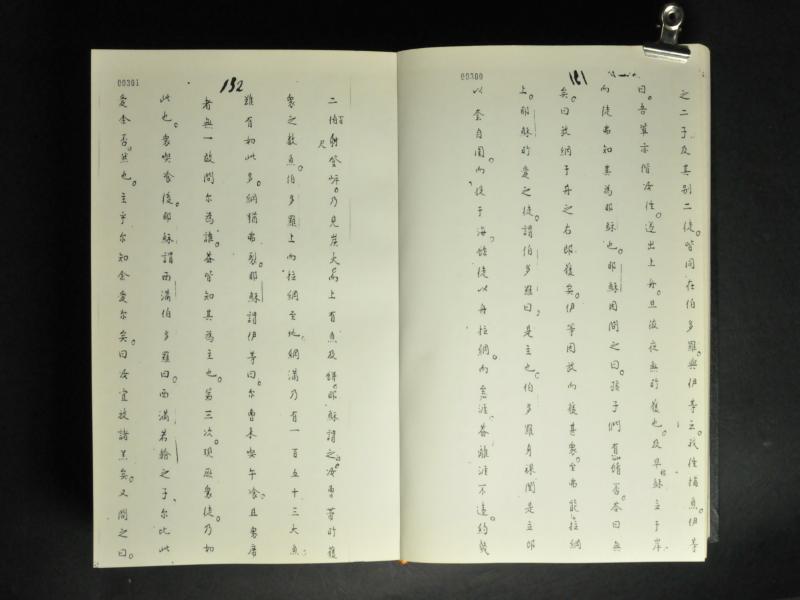 00300
181
之二子及其别二徒。皆同在伯多羅與伊等云。我往捕魚。伊等
曰。吾輩亦偕汝往。遂出上舟。且彼夜無所獲也。及早穌立于岸
而徒弗知其為耶穌也。耶穌因問之曰。孩子們有餚否。答曰無
矣。曰放網于舟之右即獲矣。伊等因放而獲甚衆。至弗能拉網
上。耶穌所愛之徒。謂伯多羅曰。是主也。伯多羅身裸聞是主即
以套自圍。而投于海。餘徒以舟拉網。而涯。蓋離涯不遠。約幾
00301
182
二百尺登岸。乃見炭火上有魚及餅。耶穌謂之汝曹著所獲
衆之數魚。伯多羅上而拉網至地。網滿乃有一百五十三大魚
雖有如此多。網猶弗裂。耶穌謂伊等曰。尔曹来喫午飡。且衆席
者無一敢問尔為誰。蓋皆知其為主也。第三次。現厥衆徒。乃如
此也。衆喫飡後。耶穌謂西滿伯多羅曰。西滿若翰之子。尔比此
愛余否。然也。主乎尔知余愛尔矣。曰汝宜牧諸羔矣。又問之曰。